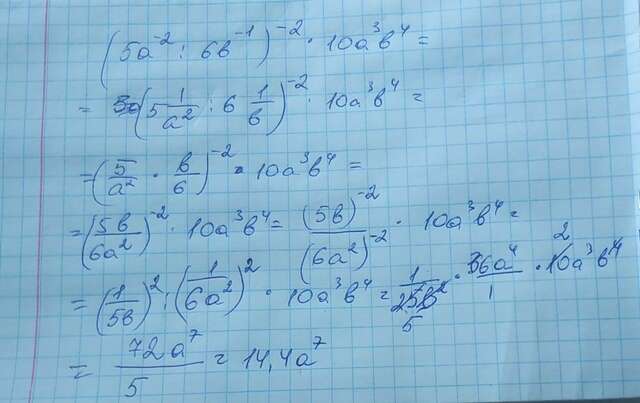 (5a⁻² : 6b⁻¹)⁻² · 10a³b⁴ =
= (5 1/a² : 6 1/b)⁻² · 10a³b⁴ =
= (5/a² · b/6)⁻² · 10a³b⁴ =
= (5b/6a²)⁻² · 10a³b⁴ = (5b)⁻²/(6a²)⁻² · 10a³b⁴ =
= (1/5b)² : (1/6a²)² · 10a³b⁴ = 1/25b² 5 · 36a⁴/1 · 10 2 a³b⁴
= 72a⁷/5 = 14,4a⁷